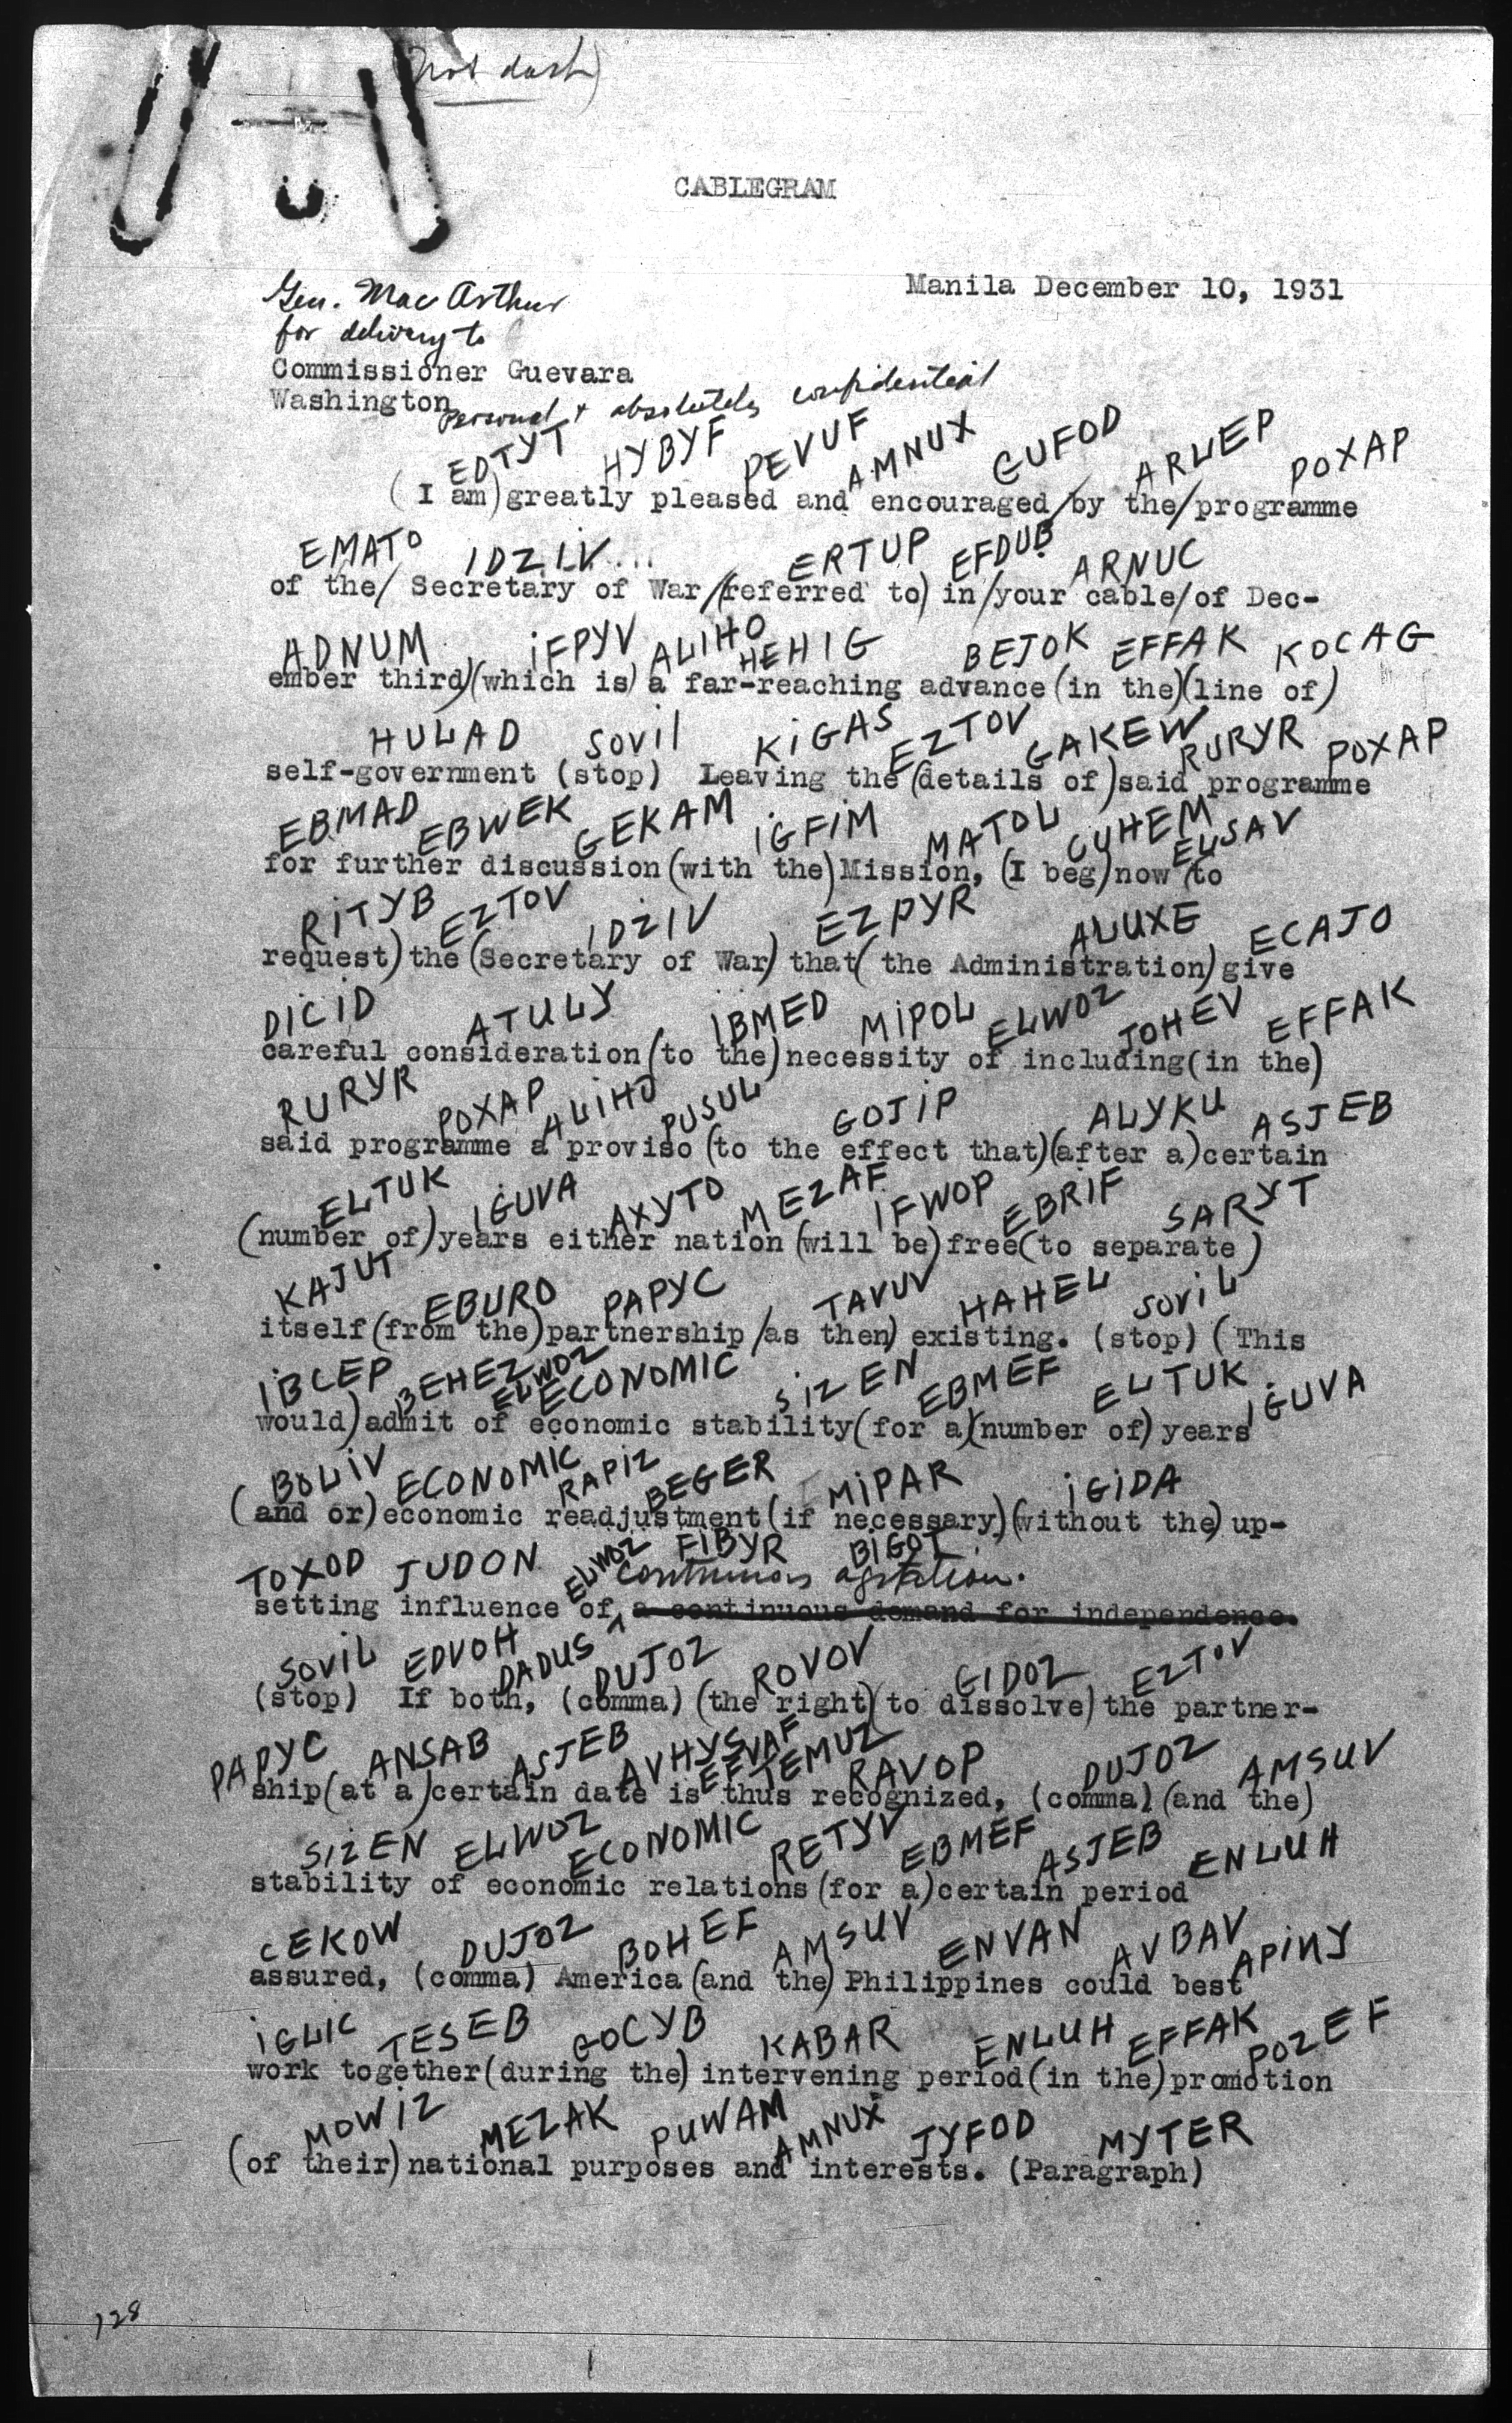 (not dash)
CABLEGRAM
Manila December 10, 1931
Gen. MacArthur
for delivery to
Commissioner Guevara
Washington
Personal & absolutely confidential
EDTYT HYBYF PEVUF AMNUX GUFOD ARLEP POXAP
(I am) greatly pleased and encouraged/by the/programme
EMATO IDZIV... ERTUP EFDUB ARNUC
of the/ Secretary of War/(referred to) in/your cable/of Dec-
ADNUM IFPYV ALIHO HEHIG BEJOK EFFAK KOCAG
ember third)(which is) a far-reaching advance (in the)(line of)
HULAD SOVIL KIGAS EZTOV GAKEW RURYR POXAP
self-government (stop) Leaving the (details of) said programme
EBMAD EBWEK GEKAM IGFIM MATOL CUHEM ELSAV
for further discussion (with the) Mission, (I beg) now (to
RITYB EZTOV IDZIV EZPYR ALUXE ECAJO
request) the (Secretary of War) that( the Administration) give
DICID ATULY IBMED MIPOL ELWOZ JOHEV EFFAK
careful consideration (to the) necessity of including (in the)
RURYR POXAP ALIHO PUSUL GOJIP ALYKU ASJEB
said programme a proviso (to the effect that)(after a) certain
ELTUK IGUVA AXYTO MEZAF IFWOP EBRIF SARYT
(number of) years either nation (will be) free (to separate)
KAJUT EBURO PAPYC TAVUV HAHEL SOVIL
itself (from the) partnership /as then) existing. (stop) (This
IBCEP BEHEZ ELWOZ ECONOMIC SIZEN EBMEF ELTUK IGUVA
would) admit of economic stability (for a)(number of) years
BOLIV ECONOMIC RAPIZ BEGER MIPAR IGIDA
(and or) economic readjustment (if necessary)(without the) up-
TOXOD JUDON ELWOZ FIBYR BIGOT
continuous agitation.
setting influence of a continuous demand for independence.
SOVIL EDVOH DADUS DUJOZ ROVOV GIDOZ EZTOV
(stop) If both, (comma) (the right)(to dissolve) the partner-
PAPYC ANSAB ASJEB AVHYS EFVAF TEMUZ RAVOP DUJOZ AMSUV
ship (at a) certain date is thus recognized, (comma) (and the)
SIZEN ELWOZ ECONOMIC RETYV EBMEF ASJEB ENLUH
stability of economic relations (for a) certain period
CEKOW DUJOZ BOHEF AMSUV ENVAN AVBAV APINY
assured, (comma) America (and the) Philippines could best
IGLIC TESEB GOCYB KABAR ENLUH EFFAK POZEF
work together (during the) intervening period (in the) promotion
MOWIZ MEZAK PUWAM AMNUX JYFOD MYTER
(of their) national purposes and interests. (Paragraph)
128
1